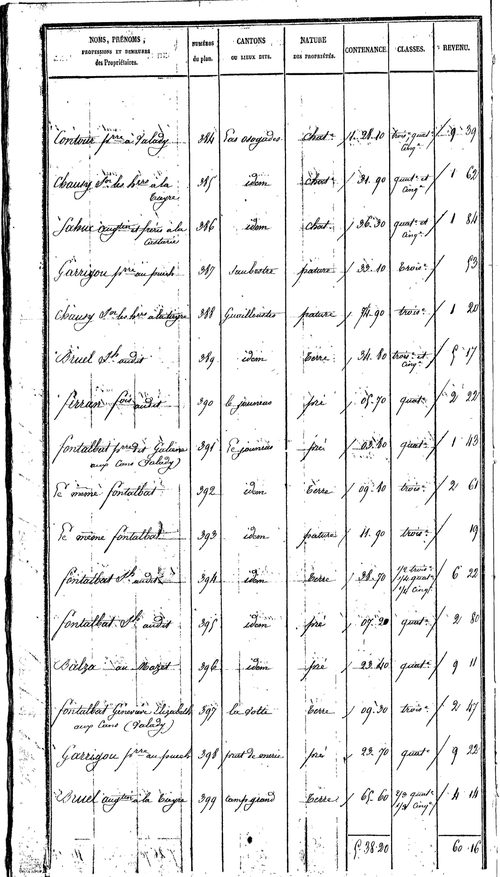 NOMS, PRÉNOMS, PROFESSIONS ET DEMEURES des Propriétaires. NUMÉROS du plan. CANTONS OU LIEUX DITS. NATURE DES PROPRIÉTÉS. CONTENANCE. CLASSES. REVENU.
Contour pre à Valady 384 Las osoyades chat. 11.28.10 trois. quat. cinq. 9 39
Chausy les hres à la trayre 385 idem chat. 31.90 quat. et cinq. 1 62
augtin et frères à la 386 idem chat. 36.30 quat. et cinq. 1 84
Garrigou pre au puech 387 pature 33.10 trois. 53
Chausy les hres à la trayre 388 pature 74.90 trois. 1 20
Bruel audit 389 idem terre 34.80 trois. et cinq. 5 17
Ferran fois audit 390 le jaunias pré 05.70 quat. 2 22
fontalbat pre dit
aux Cans (Valady) 391 Le jaunias pré 03.80 quat. 1 43
Le même fontalbat 392 idem terre 09.80 trois. 2 61
Le même fontalbat 393 idem pature 11.90 trois. 19
fontalbat audit 394 idem terre 38.70 1/2 trois. 1/4 quat. 1/4 cinq. 6 22
fontalbat audit 395 idem pré 07.20 quat. 2 80
Balza au Mazet 396 idem pré 23.40 quat. 9 11
fontalbat Geneviève Elizabeth
aux Cans (Valady) 397 la Volte terre 09.30 trois. 2 47
Garrigou pre au puech 398 prat de pré 23.70 quat. 9 22
Bruel augtin à la trayre 399 camp grand terre 65.60 2/3 quat. 1/3 cinq. 4 14
5.38.20 60.16